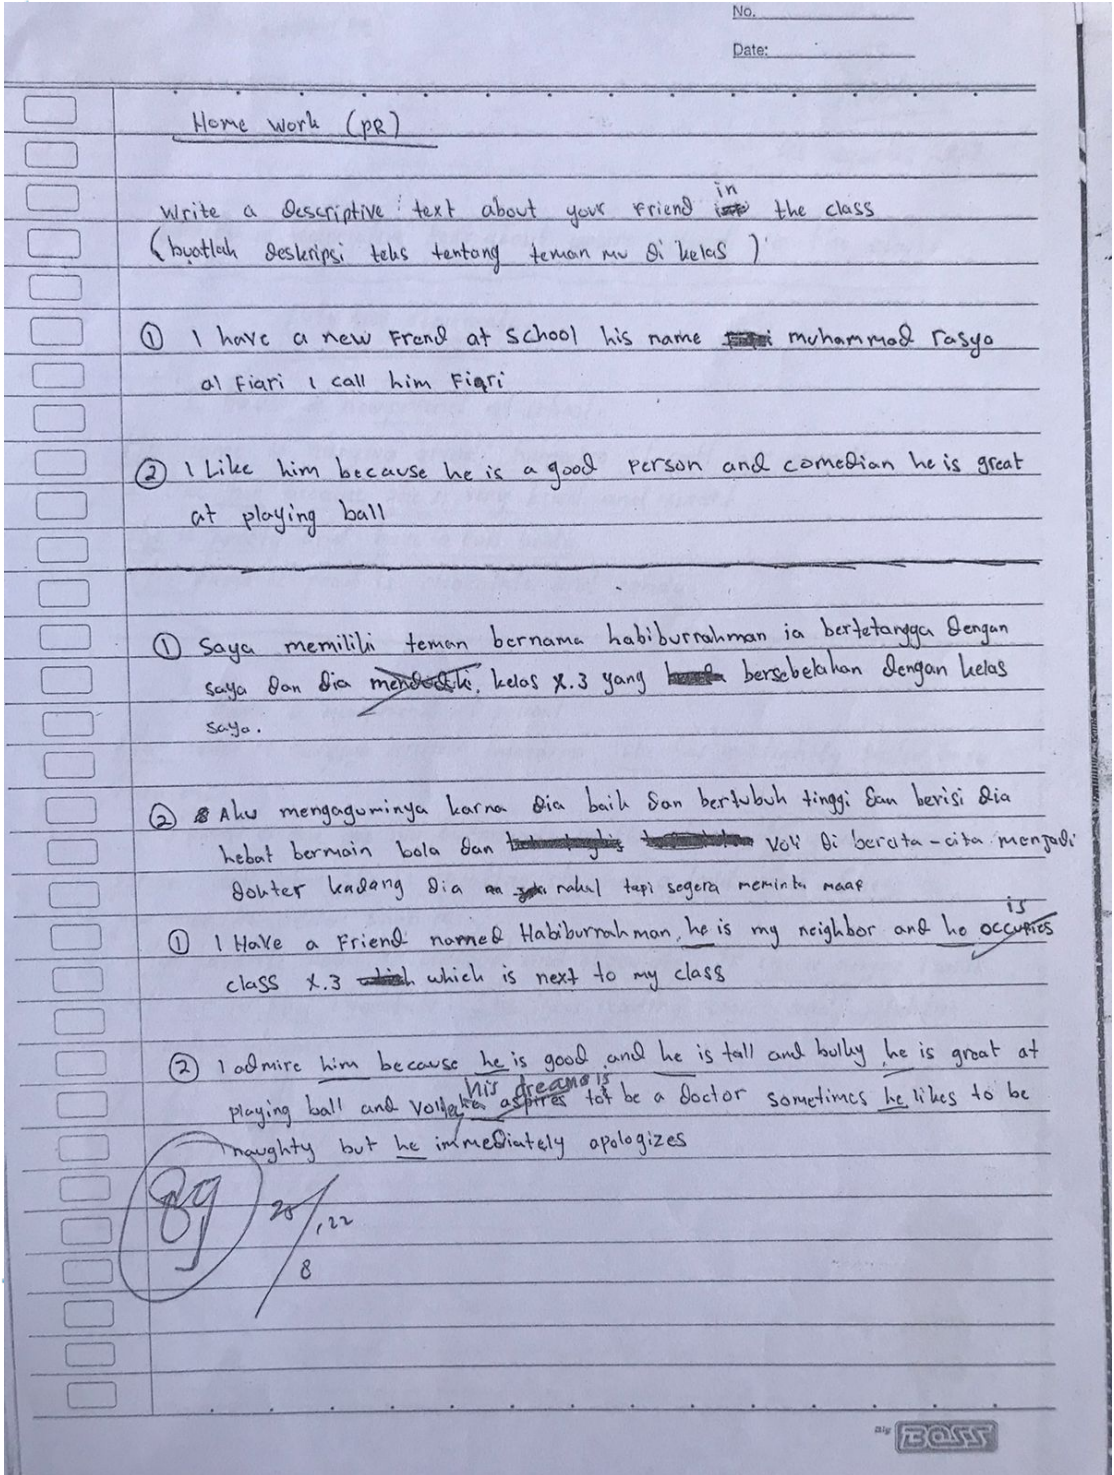 No.
Date:
Home work (PR)
in
Write a descriptive text about your Friend the class
(buatlah deskripsi teks tentang teman mu di kelas )
① I have a new Frend at school his name muhammad rasya
al Fiari I call him Fiqri
② I Like him because he is a good person and comedian he is great
at playing ball
① Saya memiliki teman bernama habiburrahman ia bertetangga dengan
saya dan dia menduduki, kelas X.3 yang bersebelahan dengan kelas
saya.
② Aku mengaguminya karna dia baik dan bertubuh tinggi dan berisi dia
hebat bermain bola dan voli di bercita-cita menjadi
dokter kadang dia nakal tapi segera meminta maaf
is
① I Have a Friend named Habiburrahman, he is my neighbor and he occupies
class X.3 which is next to my class
② I admire him because he is good and he is tall and bulky he is great at
his dreams is
playing ball and he aspires to be a doctor sometimes he likes to be
naughty but he immediately apologizes
89
25/8,22
Big BOSS